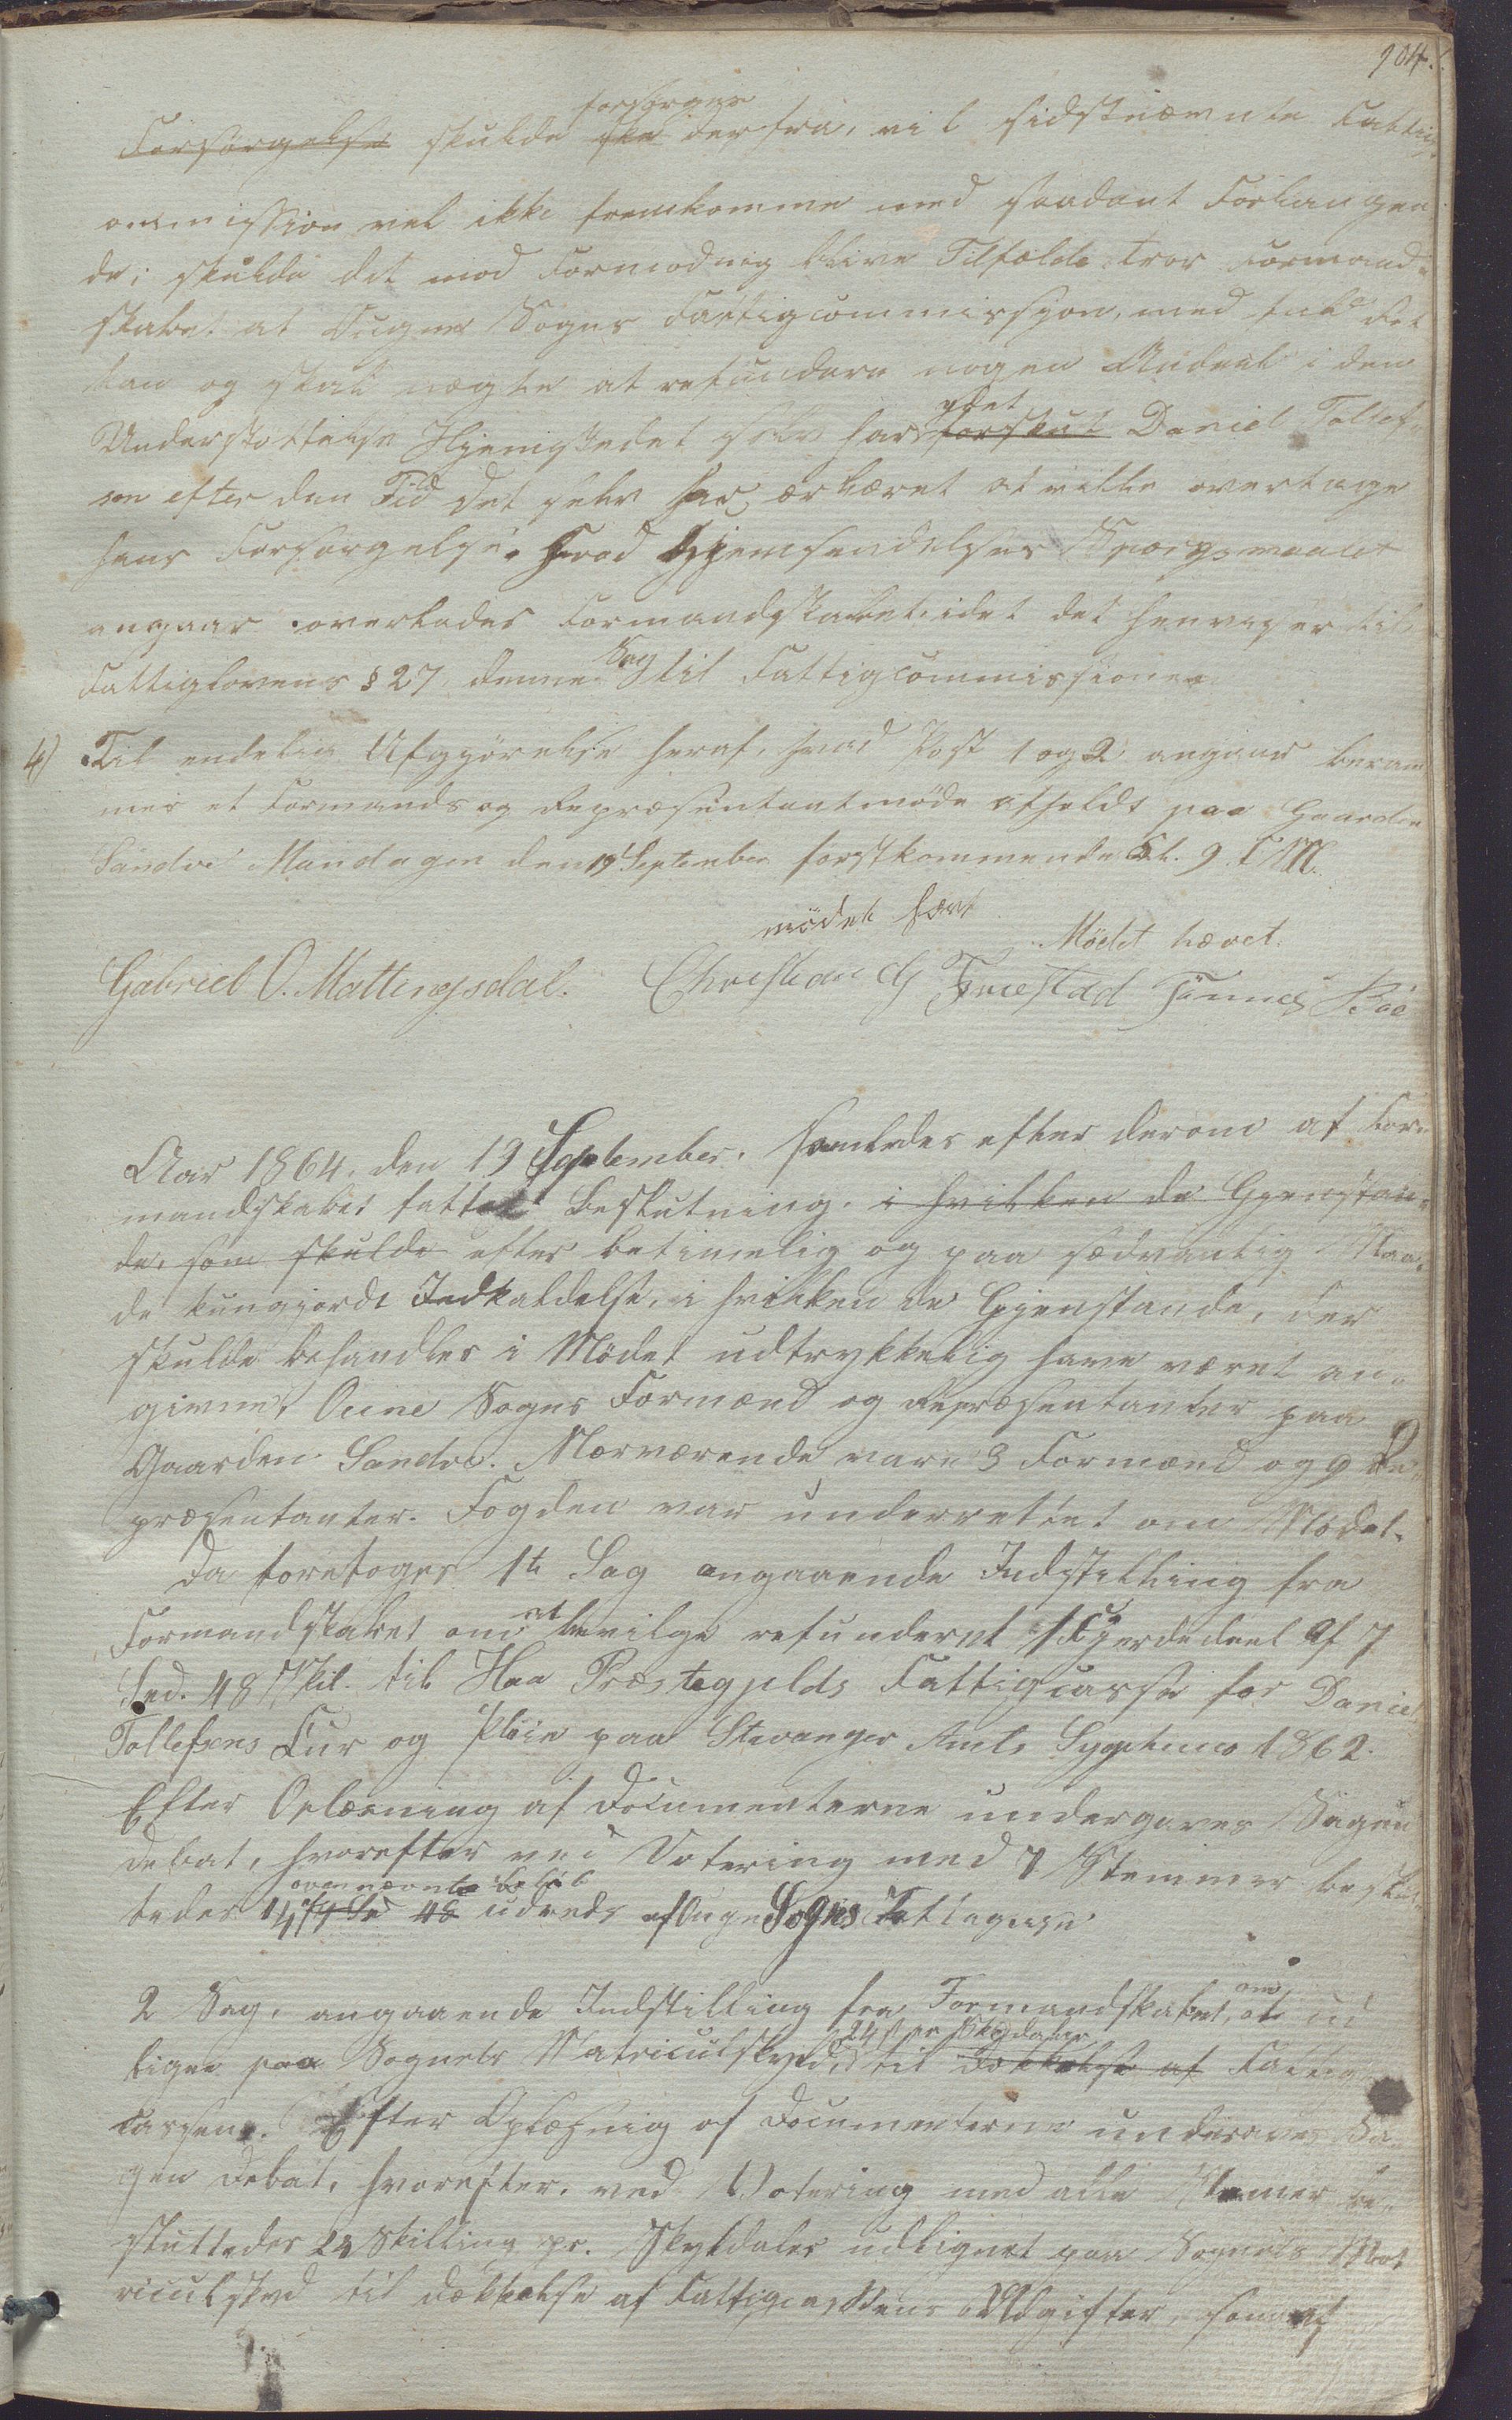 104.
forsørges
Forsørgelse skulde ske derfra, vil sidstnævnte Fattig-
ommission vel ikke fremkomme med saadant Forlangen-
de; skulde det mod Formodnig blive Tilfælde tror Formand-
skabet at Sogns Fattigcommission, med det
kan og skal nægte at refundere nogen Andeel i den
ydet
Understøttelse Hjemstedet selv har forskut Daniel Tollef-
sen efter den Tid det selv har erklæret at ville overtage
hans Forsørgelse. Hvad Hjemsendelses Spørgsmaalet
angaar overlades Formandskabet, idet det henviser til
Sag
Fattiglovens § 27, denne til Fattigcommissionen
4) Til endelig Afgjørelse heraf, hvad Post 1 og 2 angaar beram-
mes et Formands og Repræsentantmøde afholdt paa Gaarden
Sandve Mandagen den 19 September førstkommende Kl. 9 FM.
mødet hævt
Mødet hævet.
Gabriel O. Mattingsdal. Christian G Fuestad Tønnes Bøe
Aar 1864, den 19 September, samledes efter derom af For-
mandskabet fattet Beslutning, i hvilken de Gjenstan-
de, som skulde efter betimelig og paa sædvanlig Maa-
de kungjordt Indkaldelse, i hvilken de Gjenstande, der
skulde behandles i Mødet udtrykkelig have været an-
givne, Ouene Sogns Formænd og Repræsentanter paa
Gaarden Sandve. Nærværende vare 3 Formænd og 9 Re-
præsentanter. Fogden var underrettet om Mødet.
Da foretoges 1te Sag angaaende Indstilling fra
Formandskabet om at bevilge refunderet 1 Fjerdedeel af 7
Spd. 48 Skil. til Haa Præstegjelds Fattigcasse for Daniel
Tollefsens Cur og Pleie paa Stavanger Amts Sygehuus 1862.
Efter Oplæsning af Documenterne undergaves Sagen
Debat, hvorefter ved Votering med 7 Stemmer beslut-
ovennævnte Beløb
tedes 1/4 af 7 Sd 48 udreds af Sogns Fattigcasse
om
2 Sag, angaaende Indstilling fra Formandskabet, at ud
24 s pr Skylddaler
ligne paa Sognets Matriculskyld, til Dækkelse af Fattig-
cassen. Efter Oplæsnig af Documenterne undergaves Sa-
gen Debat, hvorefter, ved Votering med alle Stemer be-
sluttedes 24 Skilling pr. Skyldaler udlignet paa Sognets Mat
riculskyld til Dækkelse af Fattigcassens Udgifter, som af